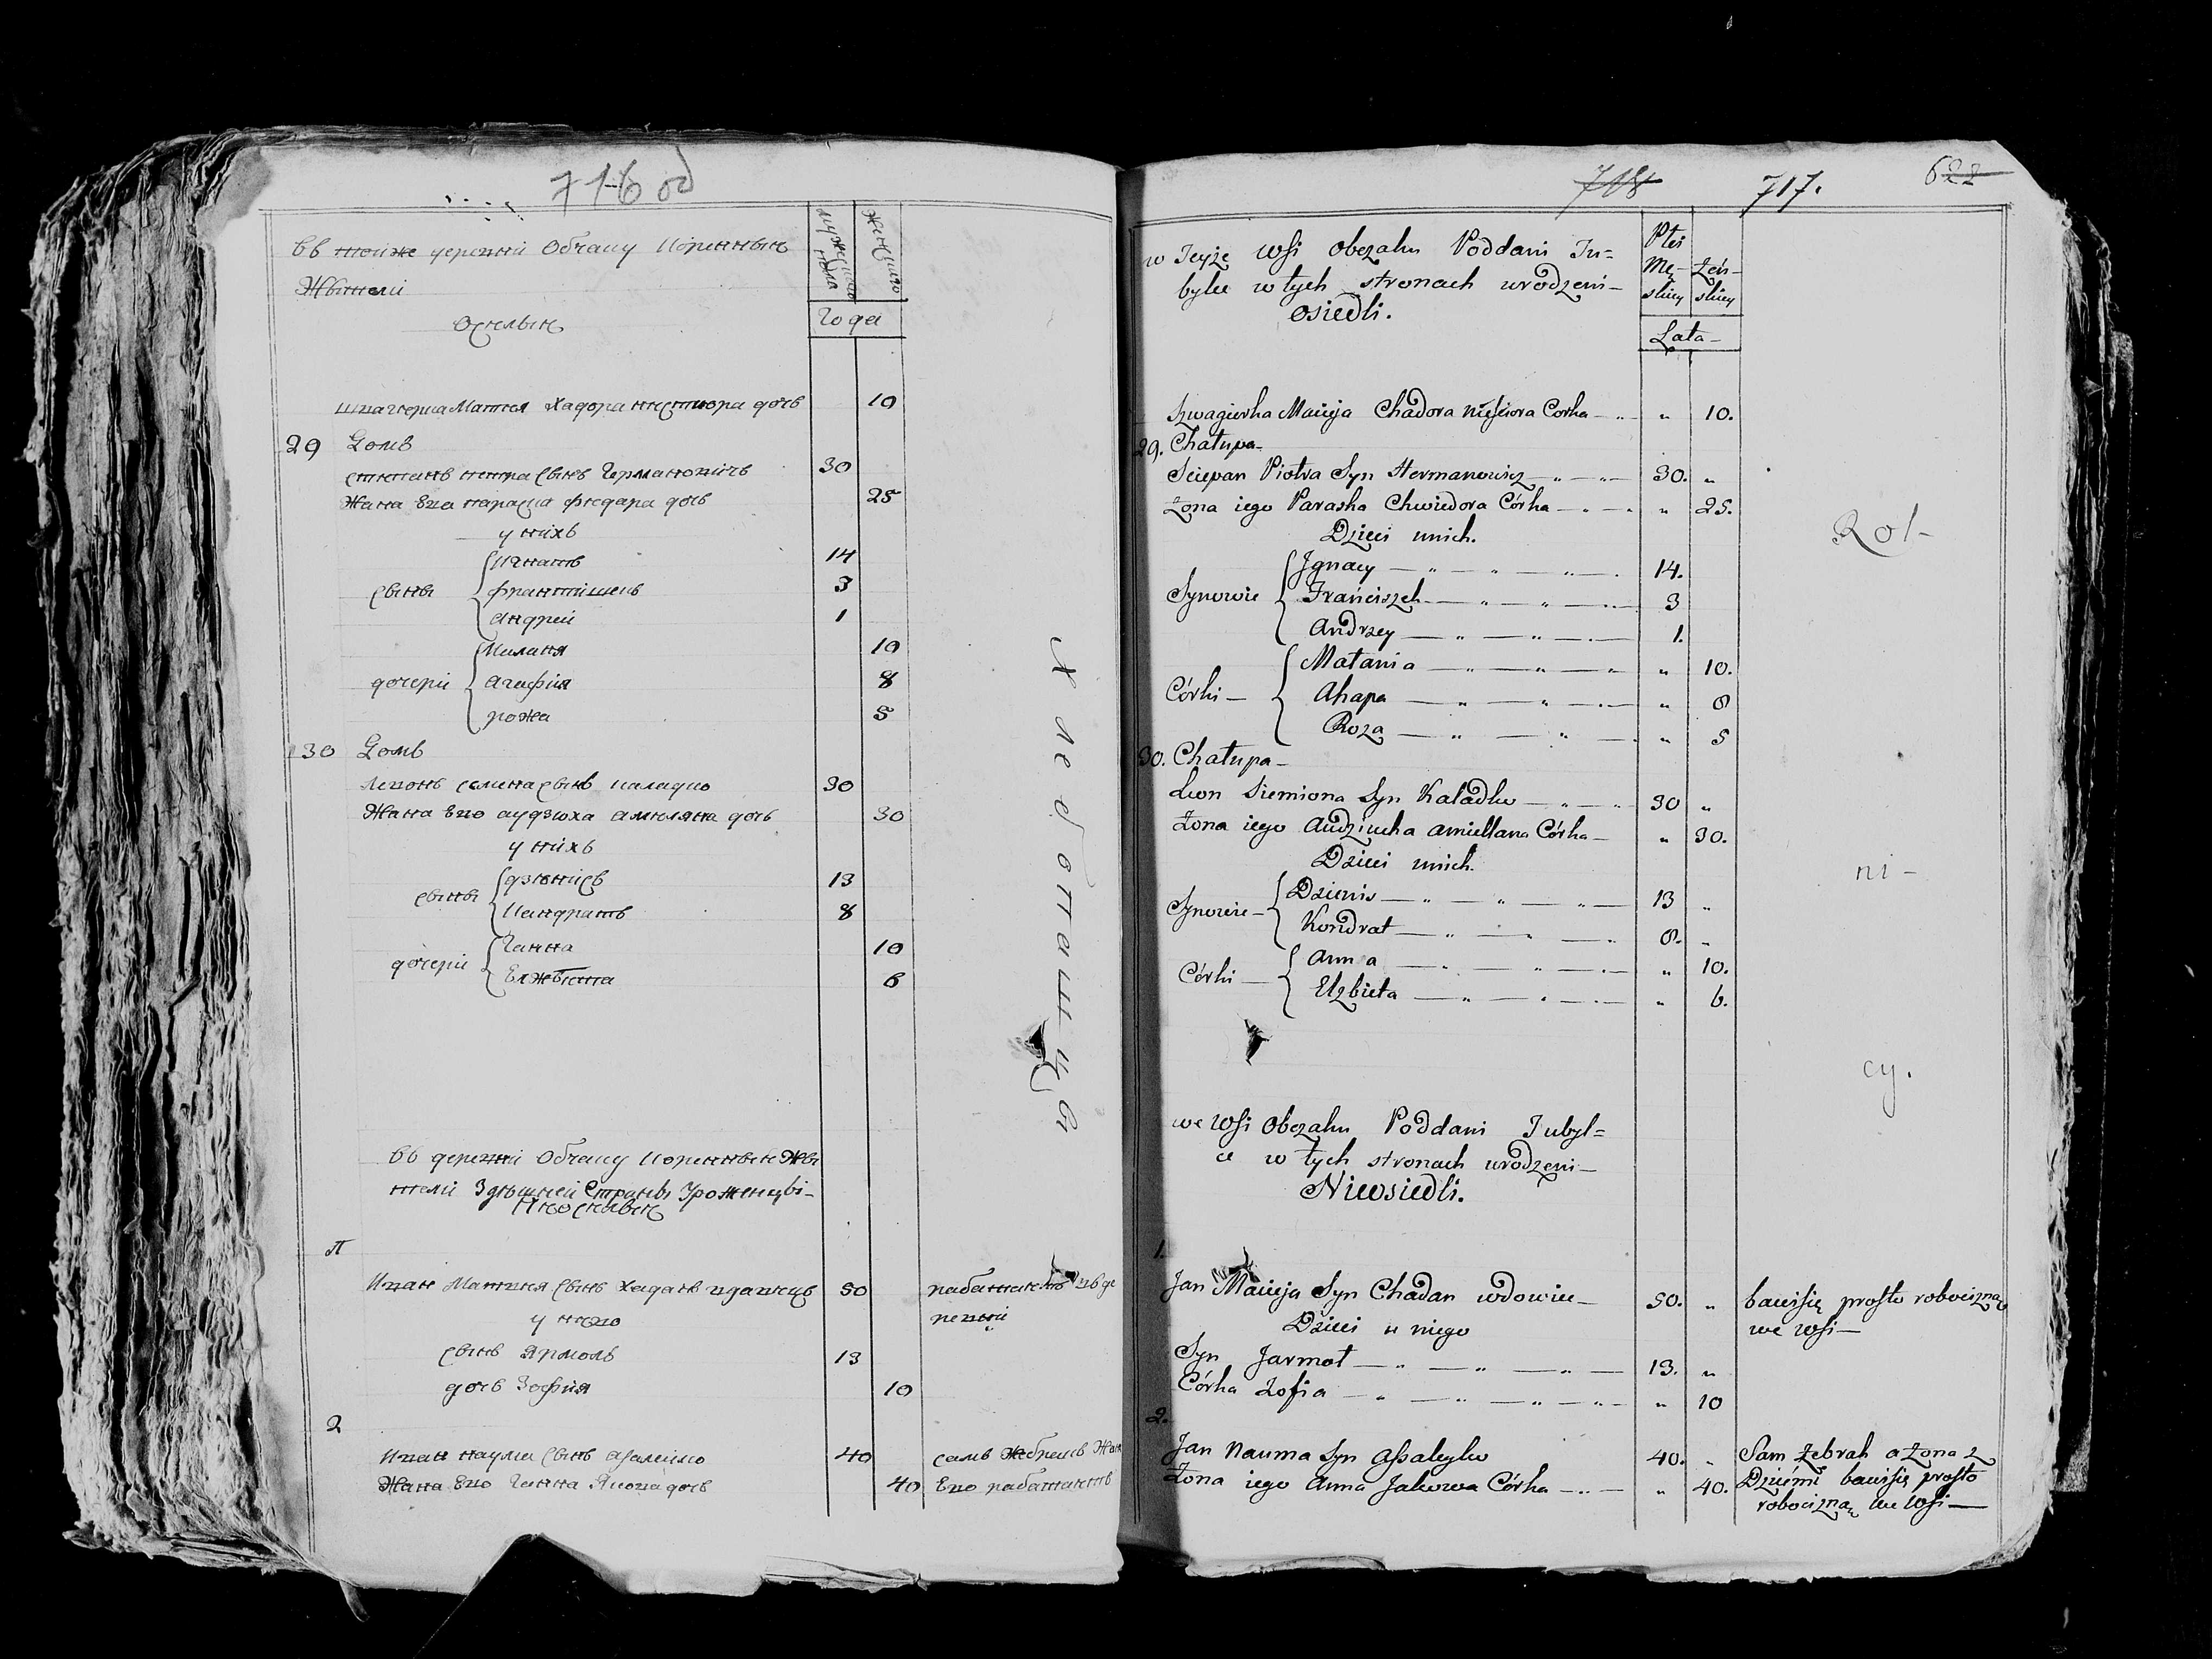 716 об
въ тойже деревни Обчаку Коренныя
Жвители
Оселыя
мужеского пола
женского
Годы
швагерка Матея Хадора нестиора дочь 10
29 Домъ
степанъ петра сынъ Германовичъ 30
Жана Его параска фведара дочь 25
у нихъ
сыны
игнатъ 14
францишекъ 3
андрей 1
дочери
Маланя 10
агафия 8
рожа 5
130 Домъ
Левонъ семена сынъ каладко 30
Жана Его аудзюха амеляна дочь 30
у нихъ
сыны
дзенисъ 13
Кандратъ 8
дочери
Ганна 10
Елжбета 6
Хлебопашца
въ деревни Обчаку Коренныя Жви
тели Здешней Страны Уроженцы
Неоселыя
Иван Матвея сынъ Хаданъ вдавецъ 50
у него
сынъ Ярмолъ 13
дочь Зофия 10
2
Иван наума сынъ 40 самъ Жебракъ Жан
Жана Его Ганна Якова дочь 40 Его
718 717. 622
w Teyże Wsi Obczaku Poddani Tu=
bylce w tych stronach urodzeni-
Osiedli.
Płci
Mę- żeń-
skiey skiey
Lata-
Szwagierka Macieja Chadora Nieściora Corka „ 10.
29. Chałupa-
Sciepan Piotra Syn Hermanowicz 30. „
Zona iego Paraska Chwiedora Córka „ 25.
Dzieci unich.
Synowie
Jgnacy 14.
Franciszek 3
Andrzey 1.
Córki
Małania „ 10.
Ahapa „ 8
Roza „ 5
Rol-
30. Chałupa-
Leon Siemiona Syn Kaladko 30 „
Zona iego Audziucha amiellana Córka „ 30.
Dzieci unich.
Synowie
Dzienis 13 „
Kondrat 8. „
ni-
Córki
Anna „ 10.
Elzbieta „ 6.
cy.
we Wsi Obczaku Poddani Tubyl=
ce w tych stronach urodzeni-
Nieosiedli.
1.
Jan Macieja Syn Chadan wdowiec 50. „ bawisię prosto robocizną
Dzieci u niego we wsi
Syn Jarmoł 13. „
Córka Zofia „ 10
2.
Jan Nauma Syn 40. „ Sam żebrak a żona z
Zona iego Anna Jakowa Córka „ 40. Dziećmi bawisię prosto
robocizną we wsi